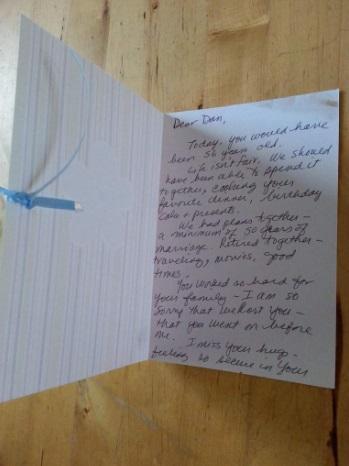 Dear Dan,
Today, you would have
been 56 years old.
Life isn't fair. We should
have been able to spend it
together, cooking your
favorite dinner, birthday
cake & presents.
We had plans together -
a minimum of 50 years of
marriage. Retired together -
traveling, movies, good
times.
You worked so hard for
your family - I am so
sorry that we lost you -
that you went on before
me.
I miss your hugs -
feeling so secure in your